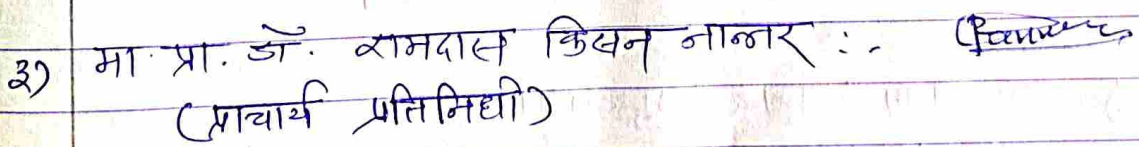 ३) मा. प्रा. डॉ. रामदास किसन नान्नर :-
(प्राचार्य प्रतिनिधी)